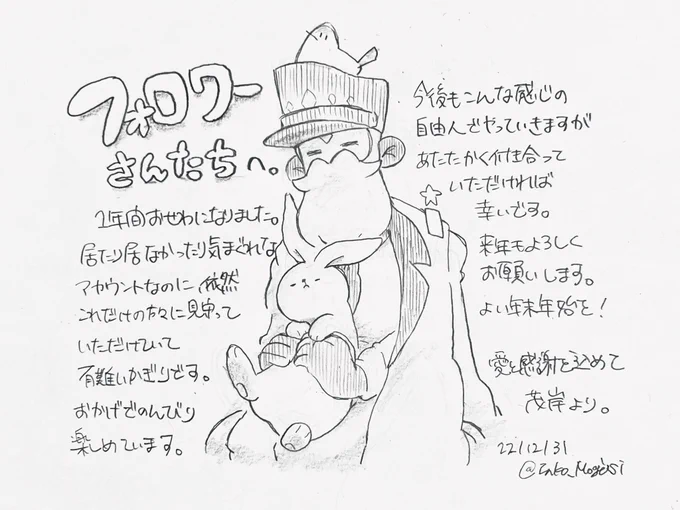 フォロワー
さんたちへ。
1年間おせわになりました。
居たり居なかったり気まぐれな
アカウントなのに依然
これだけの方々に見守って
いただけていて
有難いかぎりです。
おかげさでのんびり
楽しめています。
今後もこんな感じの
自由人でやっていきますが
あたたかく付き合って
いただければ
幸いです。
来年もよろしく
お願いします。
よい年末年始を!
愛と感謝を込めて
茂岸より。
22/12/31